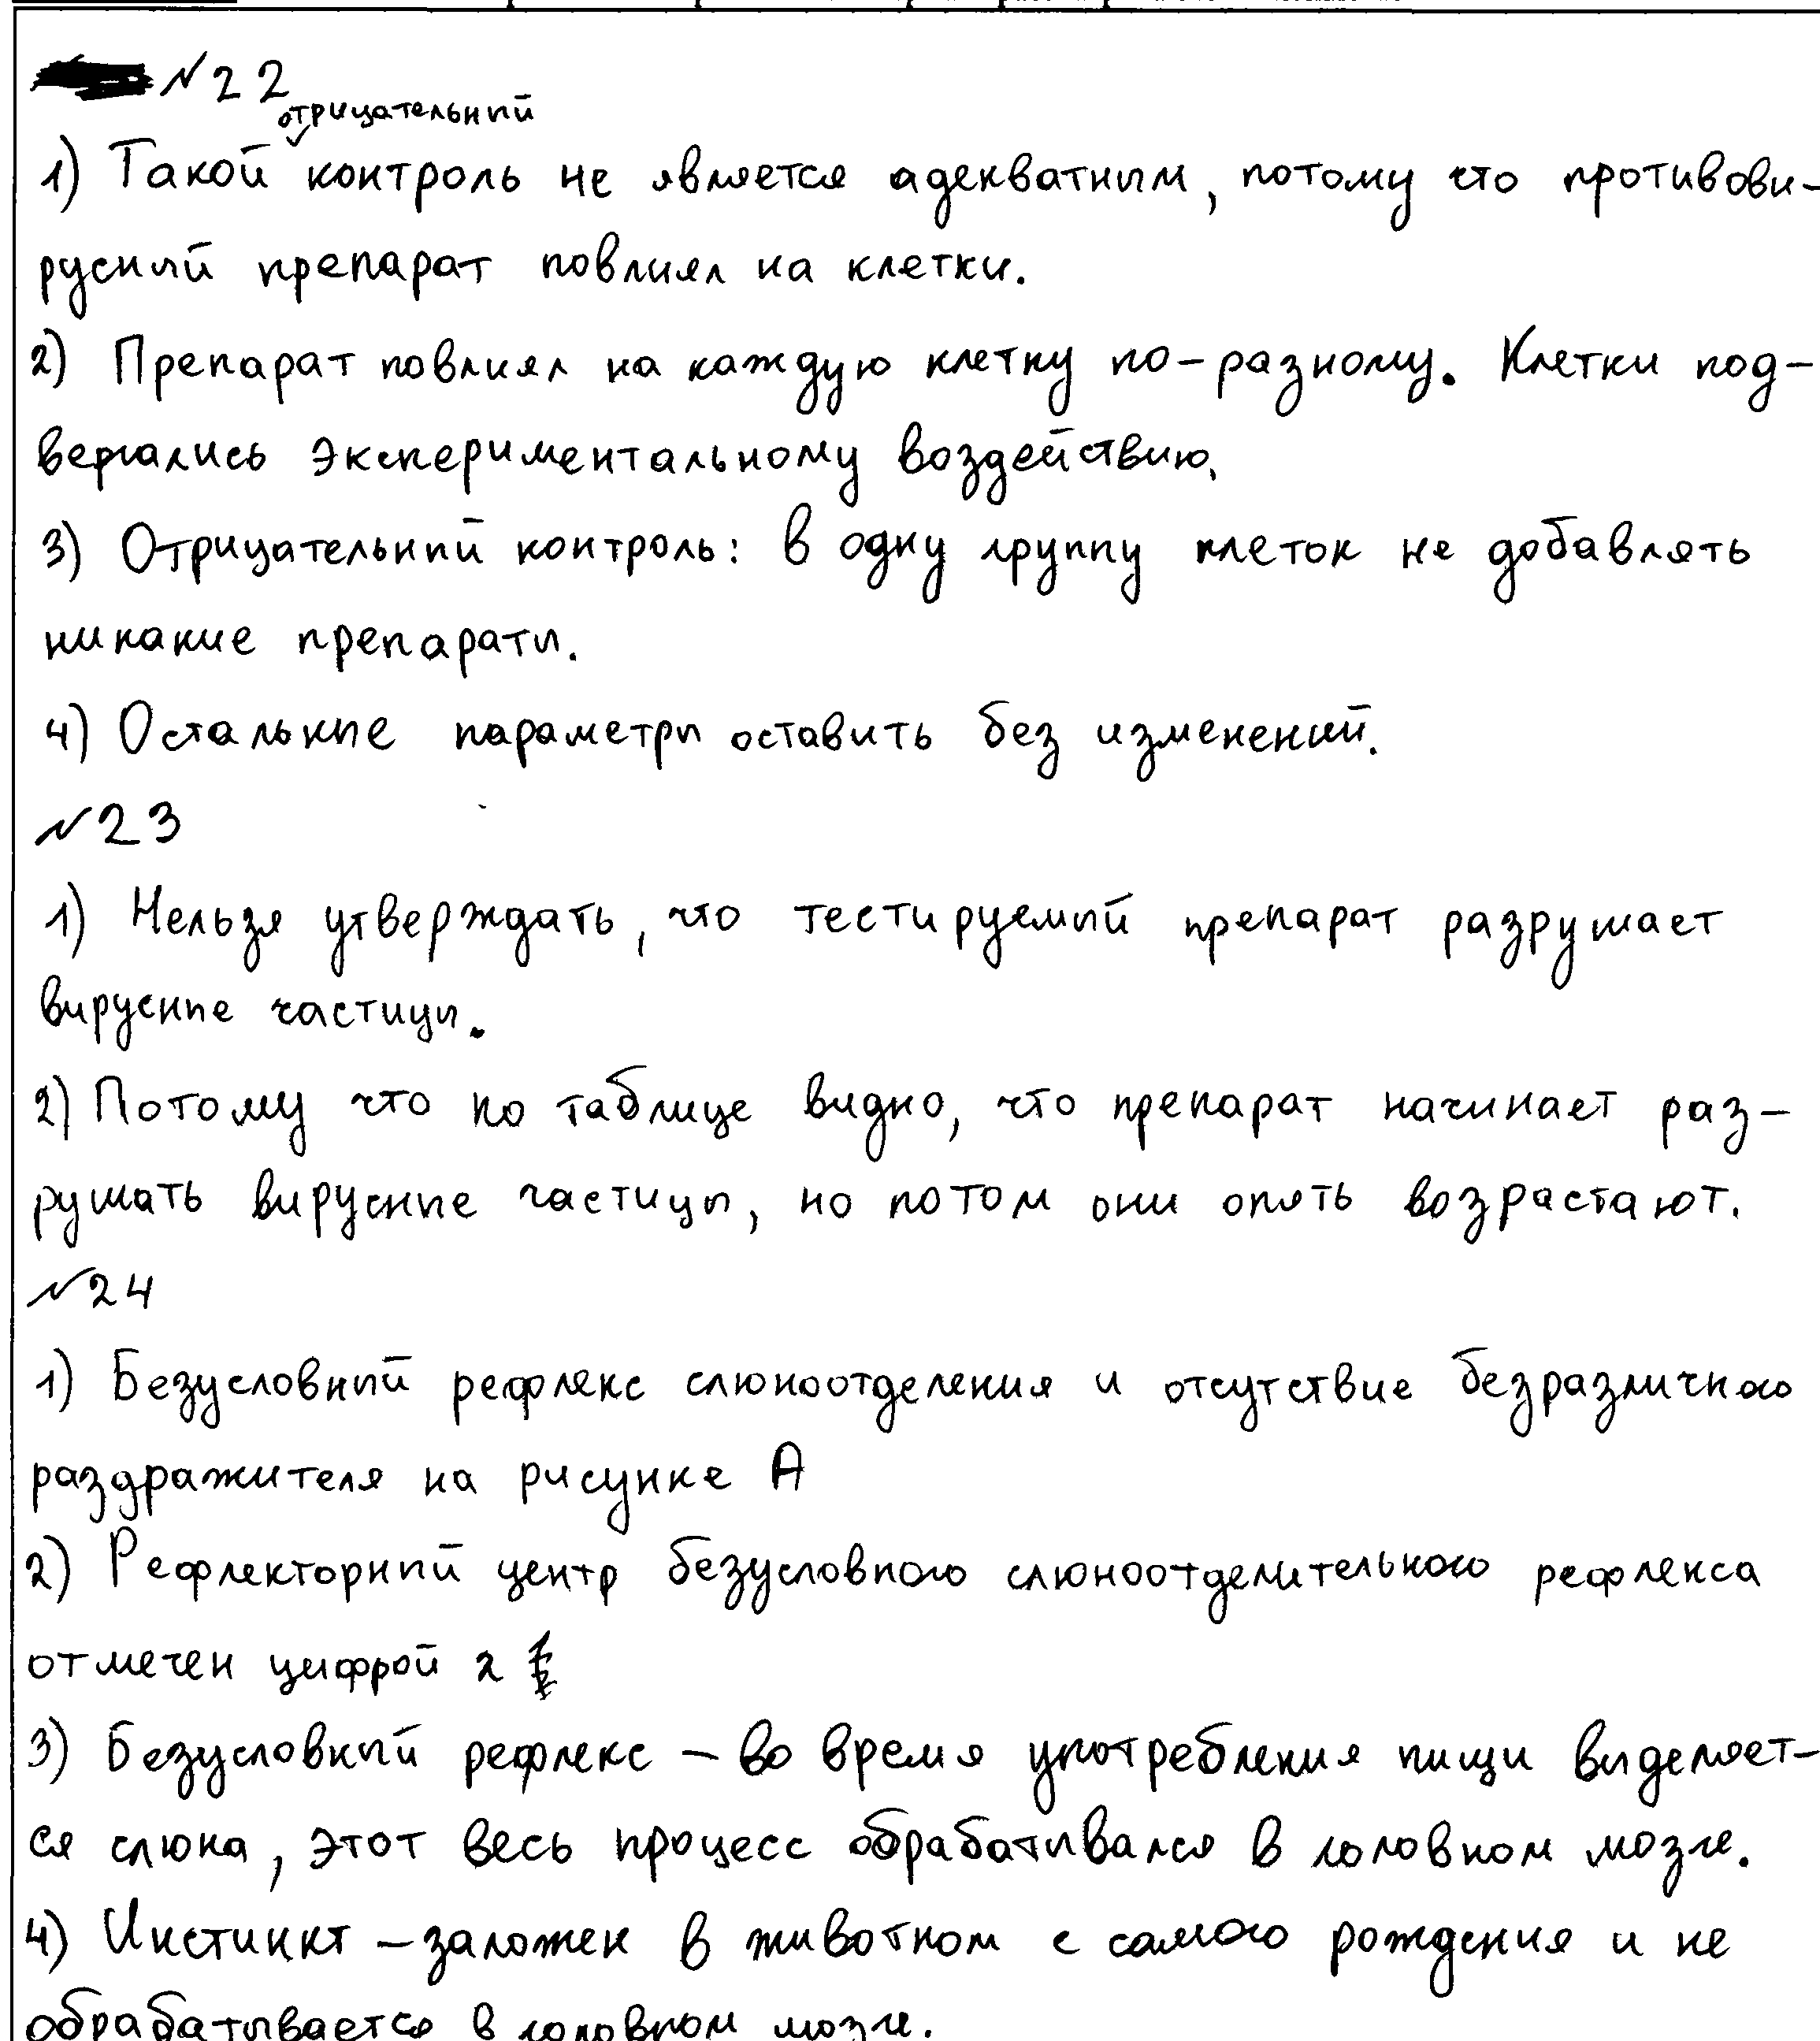 №22
отрицательный
1) Такой контроль не является адекватным, потому что противови-
русный препарат повлиял на клетки.
2) Препарат повлиял на каждую клетку по-разному. Клетки под-
вергались экспериментальному воздействию.
3) Отрицательный контроль: в одну группу клеток не добавлять
никакие препараты.
4) Остальные параметры оставить без изменений.
№23
1) Нельзя утверждать, что тестируемый препарат разрушает
вирусные частицы.
2) Потому что по таблице видно, что препарат начинает раз-
рушать вирусные частицы, но потом они опять возрастают.
№24
1) Безусловный рефлекс слюноотделения и отсутствие безразличного
раздражителя на рисунке А
2) Рефлекторный центр безусловного слюноотделительного рефлекса
отмечен цифрой 2
3) Безусловный рефлекс – во время употребления пищи выделяет-
ся слюна, этот весь процесс обрабатывался в головном мозге.
4) Инстинкт – заложен в животном с самого рождения и не
обрабатывается в головном мозге.